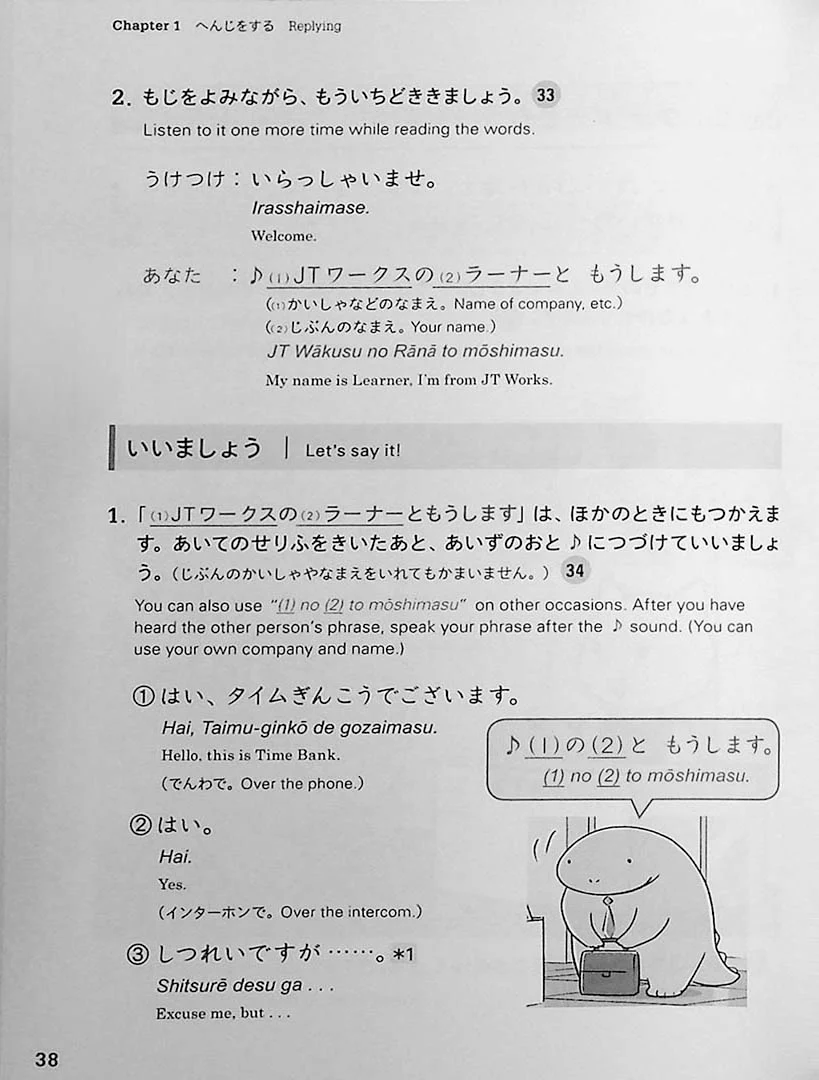 Chapter 1 へんじをする Replying
2. もじをよみながら、もういちどききましょう。 33
Listen to it one more time while reading the words.
うけつけ：いらっしゃいませ。
Irasshaimase.
Welcome.
あなた ：♪(1)JTワークスの(2)ラーナーと もうします。
((1)かいしゃなどのなまえ。Name of company, etc.)
((2)じぶんのなまえ。Your name.)
JT Wākusu no Rānā to mōshimasu.
My name is Learner, I'm from JT Works.
いいましょう | Let's say it!
1. 「(1)JTワークスの(2)ラーナーともうします」は、ほかのときにもつかえま
す。あいてのせりふをきいたあと、あいずのおと♪につづけていいましょ
う。（じぶんのかいしゃやなまえをいれてもかまいません。） 34
You can also use "(1) no (2) to mōshimasu" on other occasions. After you have
heard the other person's phrase, speak your phrase after the ♪ sound. (You can
use your own company and name.)
①はい、タイムぎんこうでございます。
Hai, Taimu-ginkō de gozaimasu.
Hello, this is Time Bank.
（でんわで。Over the phone.）
♪(1)の(2)と もうします。
(1) no (2) to mōshimasu.
②はい。
Hai.
Yes.
（インターホンで。Over the intercom.）
③しつれいですが……。*1
Shitsurē desu ga . . .
Excuse me, but . . .
38